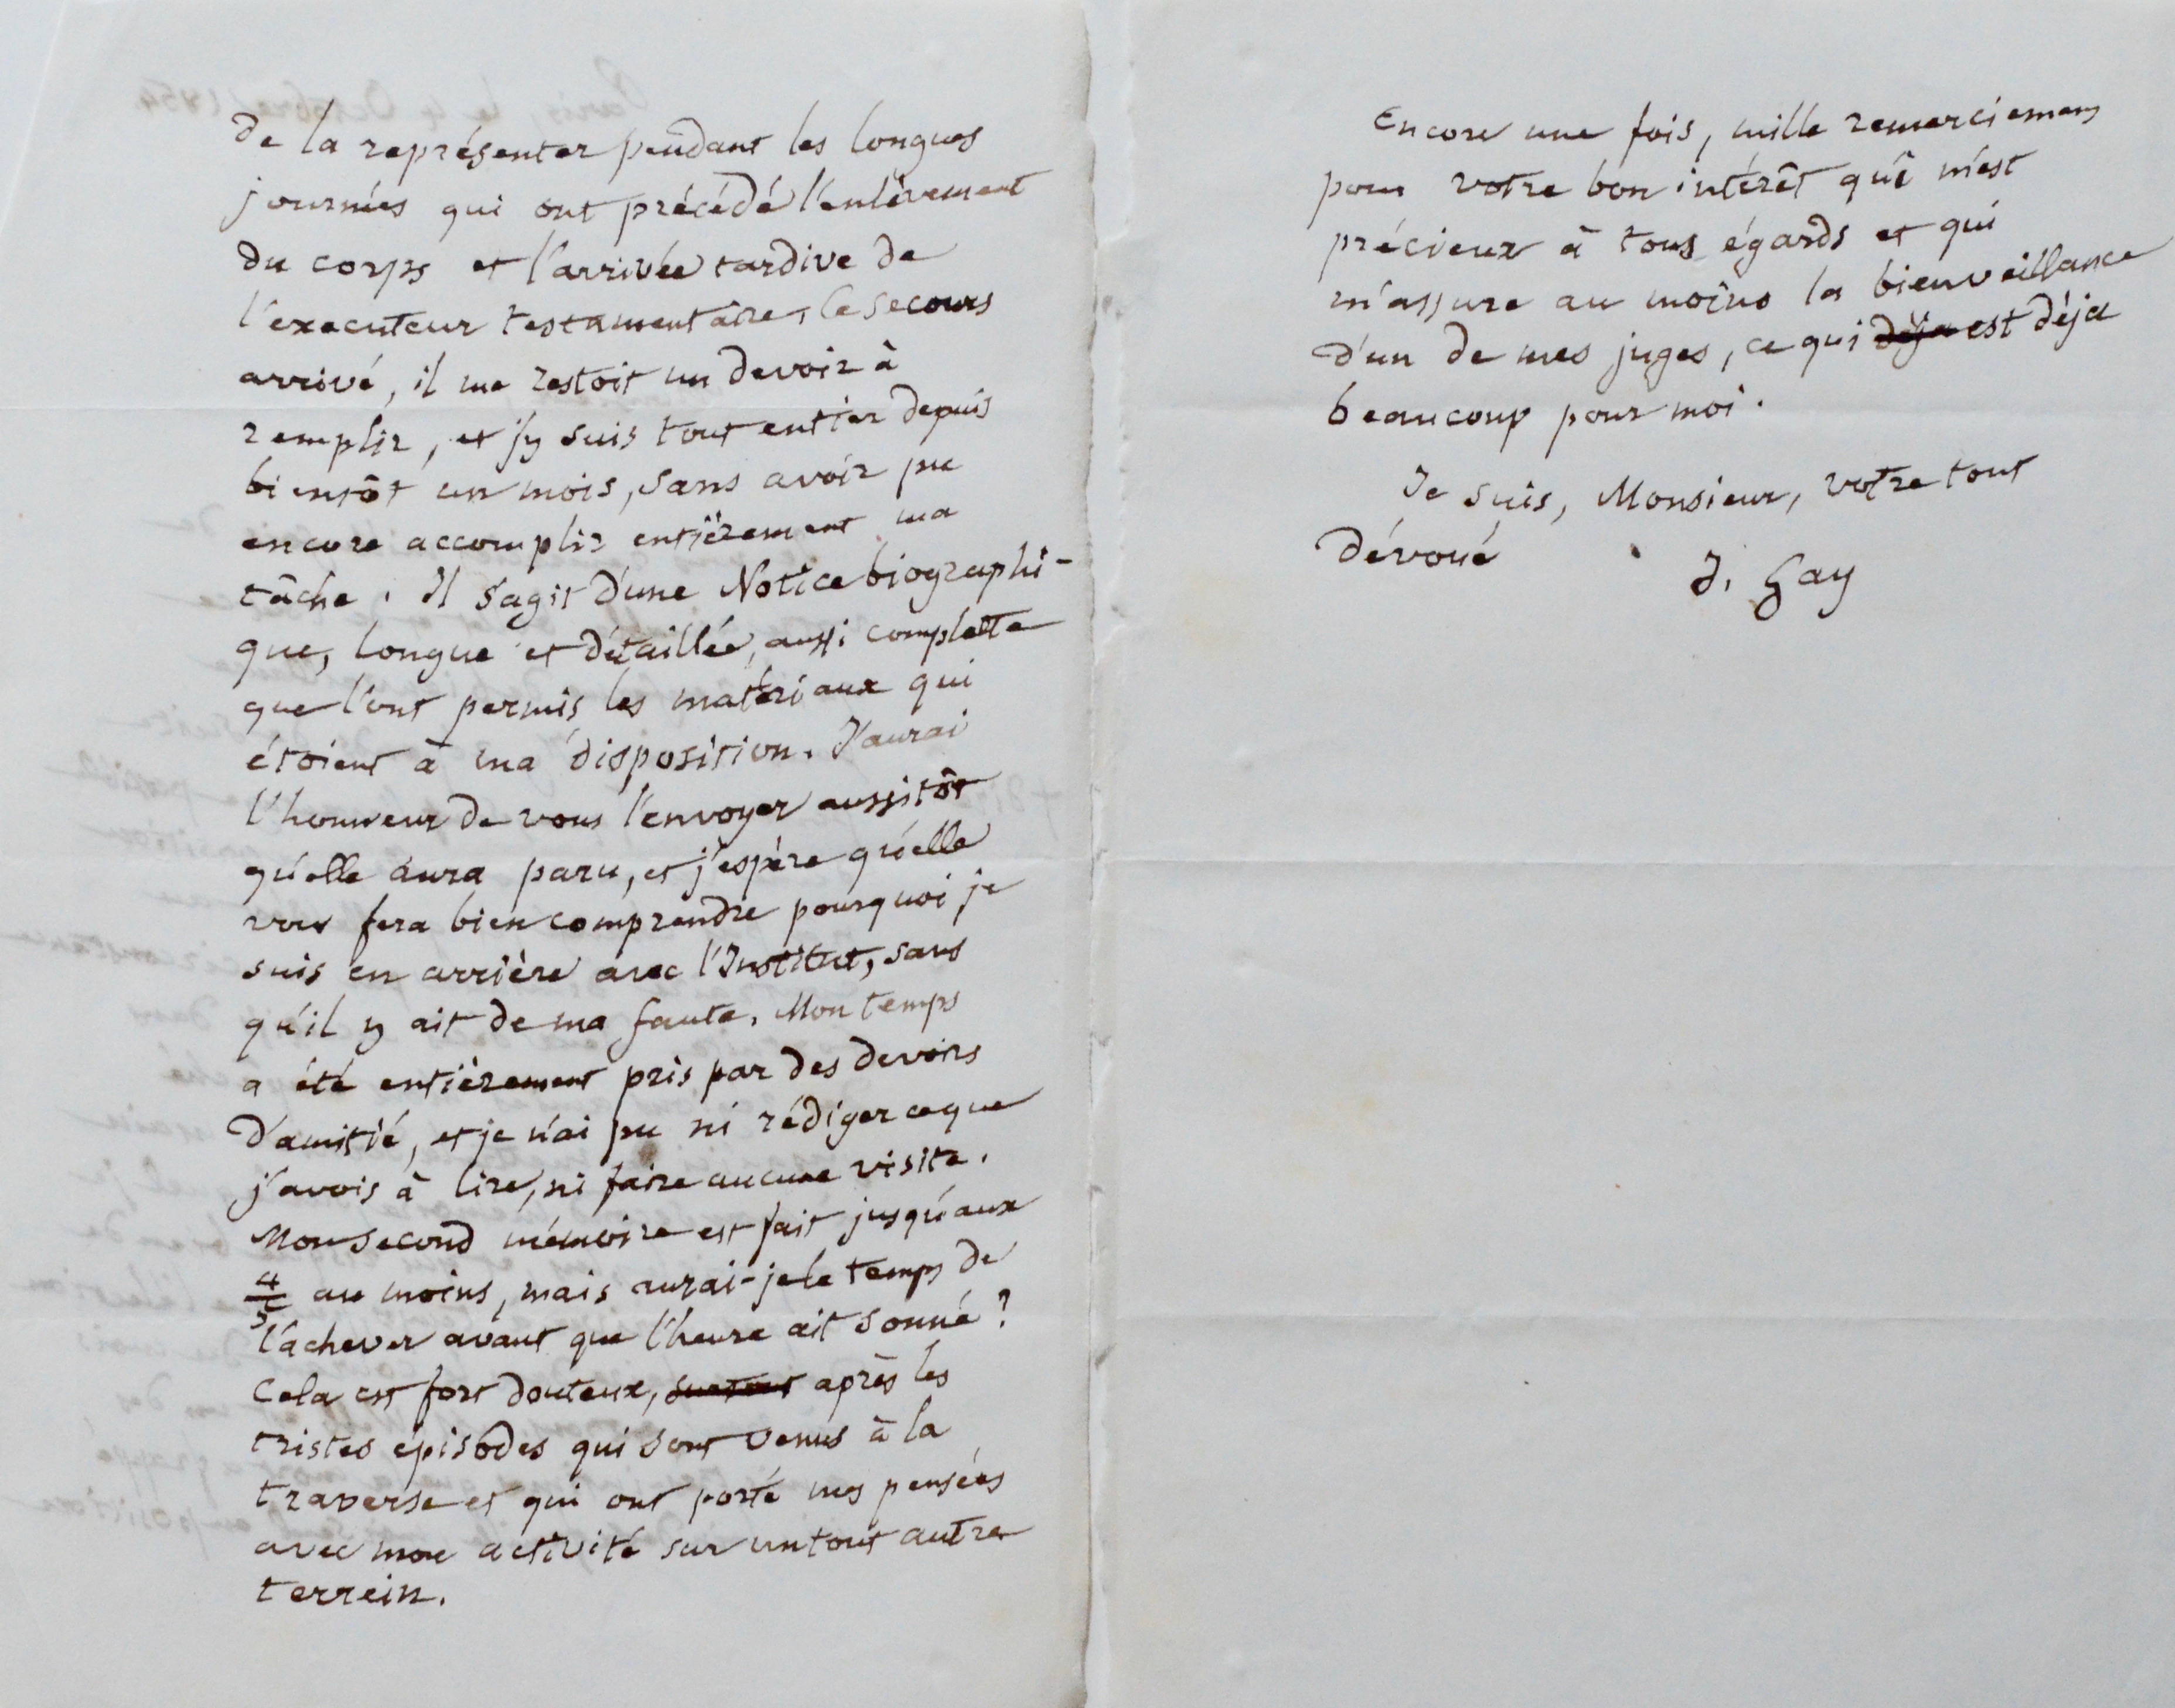 de la représenter pendant les longues
journées qui ont précédé l'enlèvement
du corps et l'arrivée tardive de
l'executeur testamentaire. Ce secours
arrivé, il me restoit un devoir à
remplir, et j'y suis tout entier depuis
bientôt un mois, sans avoir pu
encore accomplir entièrement ma
tâche. Il s'agit d'une Notice biographi-
que, longue et détaillée, aussi complette
que l'ont permis les matériaux qui
étoient à ma disposition. J'aurai
l'honneur de vous l'envoyer aussitôt
qu'elle aura paru, et j'espère qu'elle
vous fera bien comprendre pourquoi je
suis en arrière avec l'Institut, sans
qu'il y ait de ma faute. Mon temps
a été entièrement pris par des devoirs
d'amitié, et je n'ai pu ni rédiger ce que
j'avois à lire, ni faire aucune visite.
Mon second mémoire est fait jusqu'aux
4/5 au moins, mais aurai-je le temps de
l'achever avant que l'heure ait sonné?
Cela est fort douteux, surtout après les
tristes épisodes qui sont venus à la
traverse et qui ont porté mes pensées
avec mon activité sur un tout autre
terrein.
Encore une fois, mille remerciemens
pour votre bon intérêt qui m'est
précieux à tous égards et qui
m'assure au moins la bienveillance
d'un de mes juges, ce qui déja est déja
beaucoup pour moi.
Je suis, Monsieur, votre tout
dévoué
J. Gay